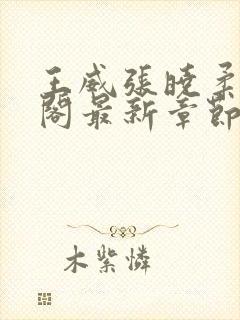 王威張曉柔
閣最新章節
木紫憐